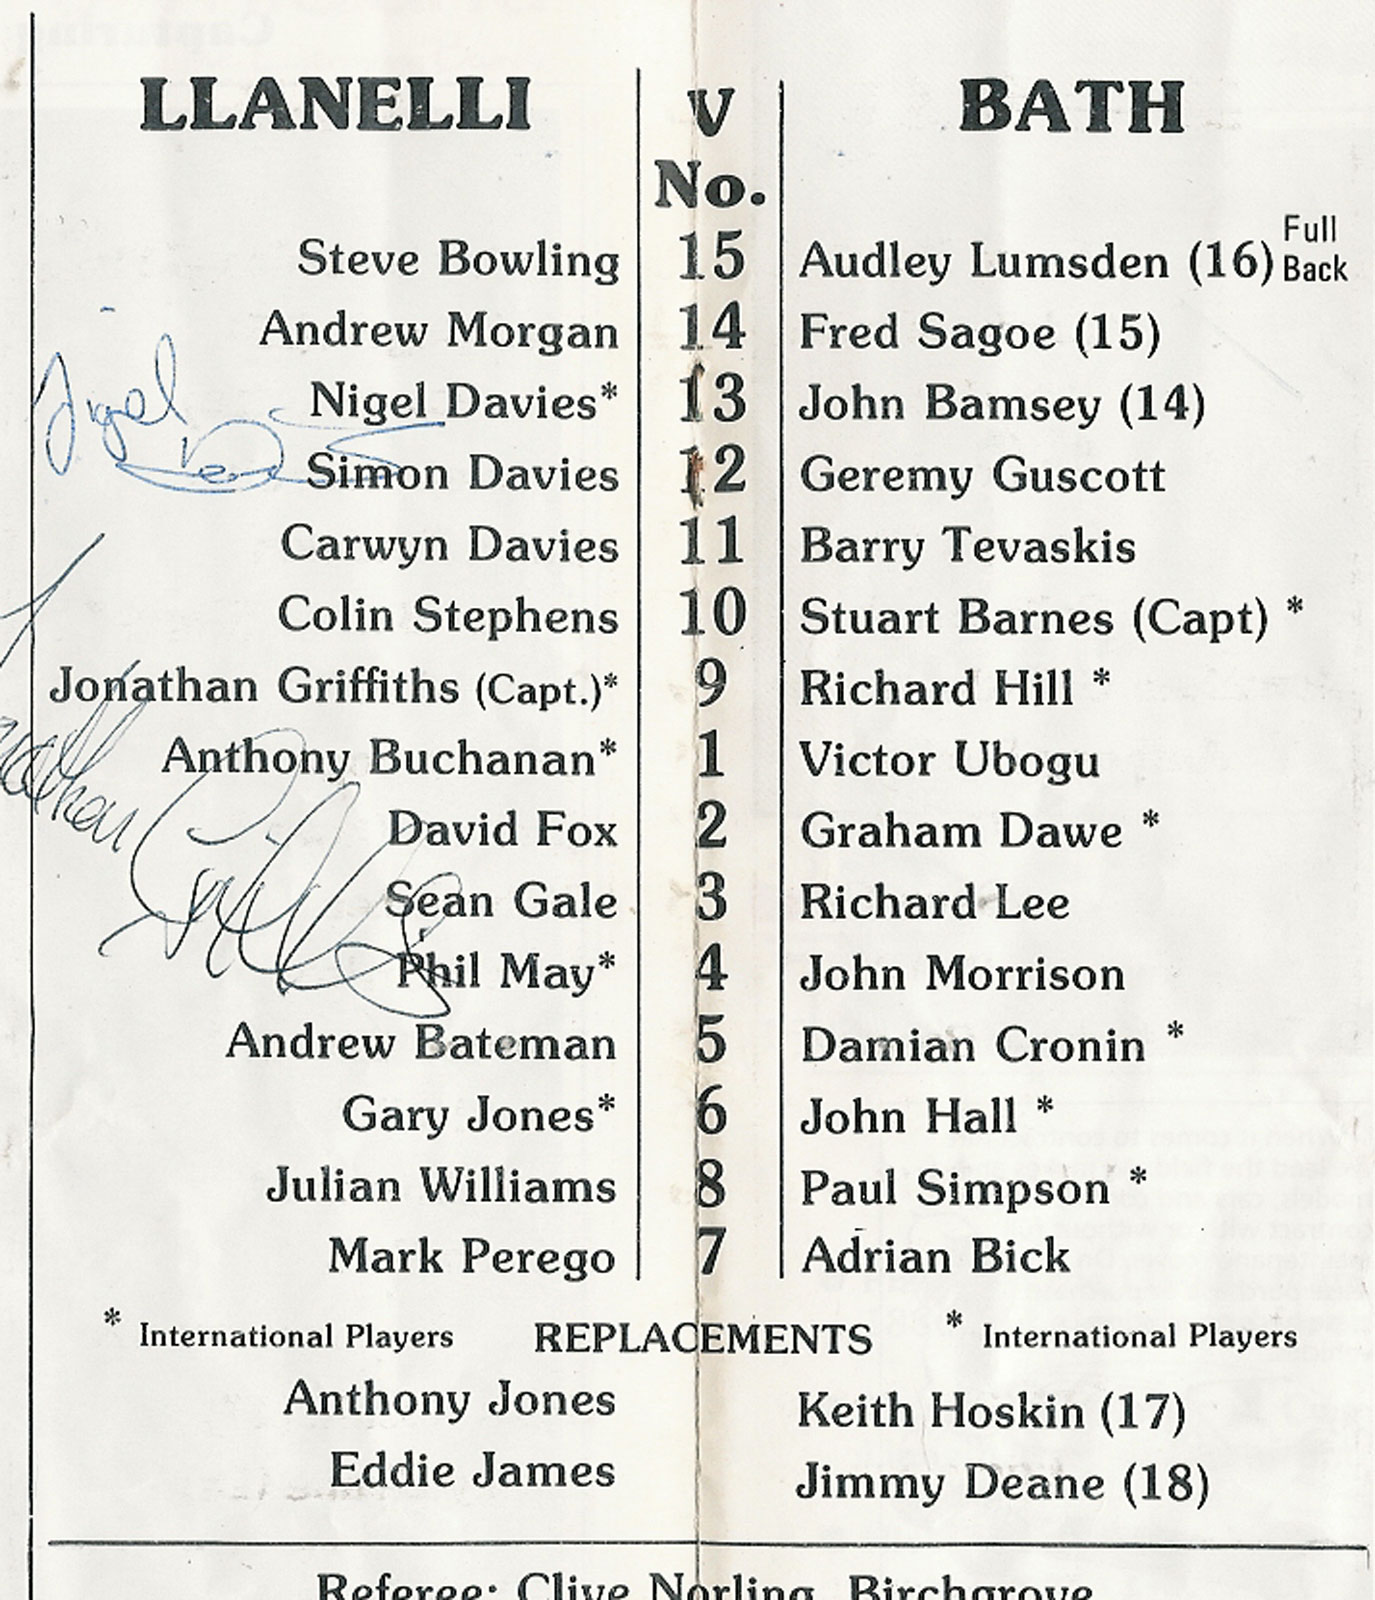 LLANELLI V BATH
No.
Steve Bowling 15 Audley Lumsden (16) Full Back
Andrew Morgan 14 Fred Sagoe (15)
Nigel Davies* 13 John Bamsey (14)
Nigel Davies
Simon Davies 12 Geremy Guscott
Carwyn Davies 11 Barry Tevaskis
Colin Stephens 10 Stuart Barnes (Capt) *
Jonathan Griffiths (Capt.)* 9 Richard Hill *
Anthony Buchanan* 1 Victor Ubogu
Jonathan Griffiths
David Fox 2 Graham Dawe *
Sean Gale 3 Richard Lee
Phil May* 4 John Morrison
Andrew Bateman 5 Damian Cronin *
Gary Jones* 6 John Hall *
Julian Williams 8 Paul Simpson *
Mark Perego 7 Adrian Bick
* International Players REPLACEMENTS * International Players
Anthony Jones Keith Hoskin (17)
Eddie James Jimmy Deane (18)
Referee: Clive Norling, Birchgrove